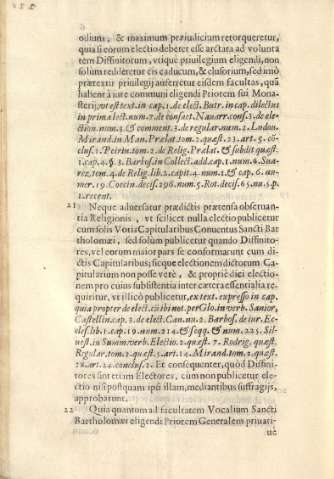 odium, & maximum præiudicium retorqueretur,
quia si eorum electio deberet esse arctata ad volunta
tem Diffinitorum, vtique priuilegium eligendi, non
solum redderetur eis caducum, & elusorium, sed imò
prætextu priuilegij auferetur eisdem facultas, quā
habent à iure communi eligendi Priorem sui Mona-
sterij, vt est text. in cap. 1. de elect. Butr. in cap. dilectus
in prima lect. num. 7. de consuet. Nauarr. cons. 3. de ele-
ction. num. 3. & comment. 3. de regular. num. 2. Ludou.
Mirand. in Man. Prælat. tom. 2. quæst. 23. art. 5. cō-
clus. 1. Peirin. tom. 2. de Relig. Prælat. & subdit. quæst.
1. cap. 4. §. 3. Barbos. in Collect. add. cap. 1. num. 9. Sua-
rez, tom. 4. de Relig. lib. 2. capit. 4. num. 1. & cap. 6. nu-
mer. 19. Coccin. decis. 296. num. 5. Rot. decis. 65. nu. 3. p.
1. recent.
21 Neque aduersatur prædictis prætensa obseruan-
tia Religionis, vt scilicet nulla electio publicetur
cum solis Votis Capitularibus Conuentus Sancti Bar
tholomæi, sed solum publicetur quando Diffinito-
res, vel eorum maior pars se conformarunt cum di-
ctis Capitularibus; sicque electionem dictorum Ca-
pitularium non posse verè, & propriè dici electio-
nem pro cuius subsistentia inter cætera essentialia re-
quiritur, vt illicò publicetur, ex text. expresso in cap.
quia propter de elect. vbi not. per Glo. in verb. Sanior,
Castellin. cap. 2. de elect. Can. nu. 2. Barbos. de iur. Ec-
cles. lib. 1. cap. 19. num. 214. & seqq. & num. 225. Sil-
uest. in Summ. verb. Electio 2. quæst. 7. Rodrig. quæst.
Regular. tom. 2. quæst. 5. art. 14. Mirand. tom. 2. quæst.
23. art. 24. conclus. 2. Et consequenter, quòd Diffini-
tores sint etiam Electores, cùm non publicetur ele-
ctio nisi postquam ipsi illam, mediantibus suffragijs,
approbarunt.
22 Quia quantum ad facultatem Vocalium Sancti
Bartholomæi eligendi Priorem Generalem priuati-
uè